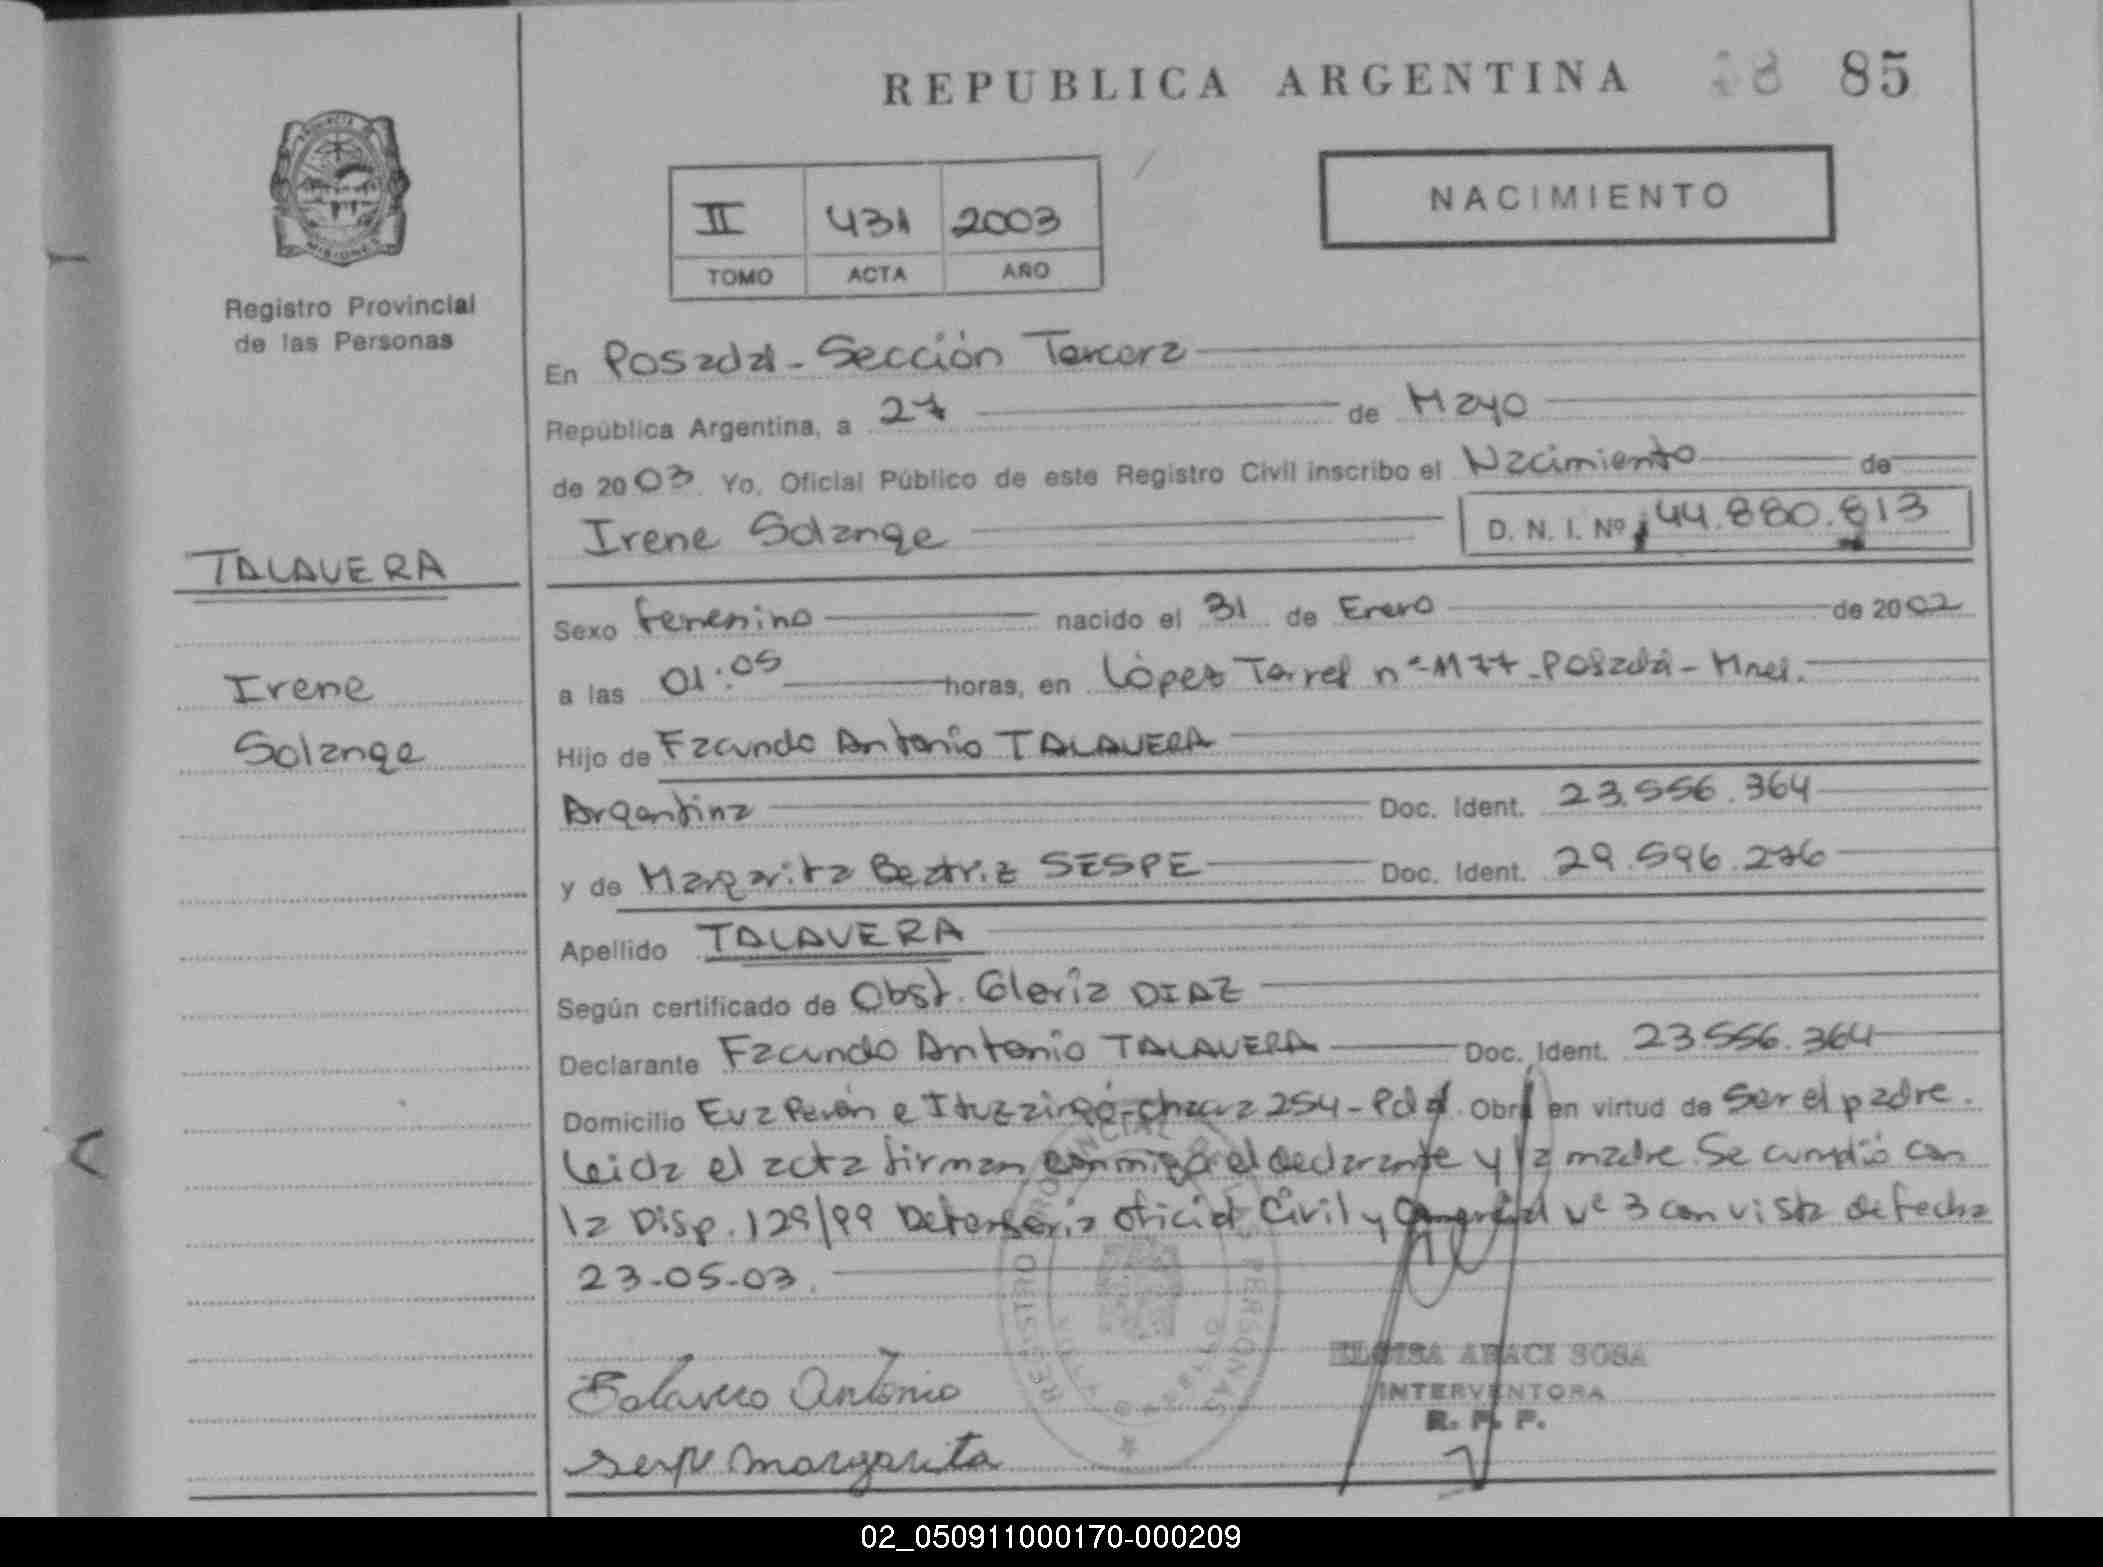 REPUBLICA ARGENTINA 85
PROVINCIA DE
MISIONES
Registro Provincial
de las Personas
II 431 2003
TOMO ACTA AÑO
NACIMIENTO
En Posadas - Sección Tercera
República Argentina, a 27 de Mayo
de 2003. Yo, Oficial Público de este Registro Civil inscribo el Nacimiento de
Irene Solange D. N. I. Nº 44.880.813
TALAVERA
Sexo femenino nacido el 31 de Enero de 2002
Irene
a las 01:05 horas, en López Torres nº 1177 - Posadas - Mnes.
Solange
Hijo de Facundo Antonio TALAVERA
Argentina Doc. Ident. 23.556.364
y de Margarita Beatriz SESPE Doc. Ident. 29.596.276
Apellido TALAVERA
Según certificado de Obst. Gloria DIAZ
Declarante Facundo Antonio TALAVERA Doc. Ident. 23.556.364
Domicilio Eva Perón e Ituzaingó - chacra 254 - Pdas. Obra en virtud de Ser el padre.
Leida el acta firman conmigo el declarante y la madre. Se cumplió con
la Disp. 129/99 Defensoria Oficial Civil y Comercial Nº 3 con vista de fecha
23-05-03.
REGISTRO PROVINCIAL DE LAS PERSONAS
ELOISA ARACI SOSA
INTERVENTORA
R. P. P.
Talavera Antonio
Sespe Margarita
02_050911000170-000209